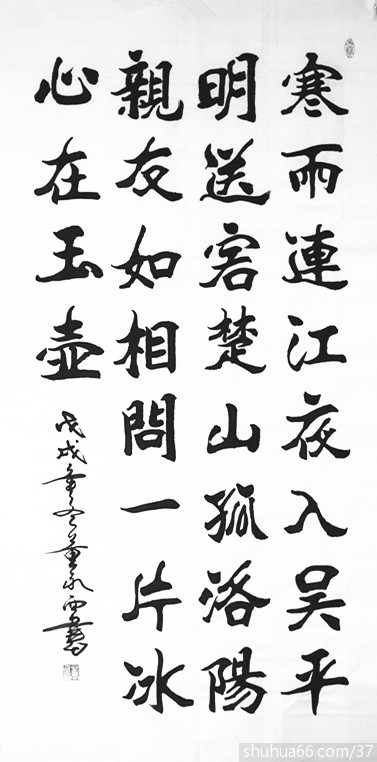 寒雨連江夜入吴平
明送客楚山孤洛陽
親友如相問一片冰
心在玉壺
戊戌年冬董永雨書
shuhua66.com/37